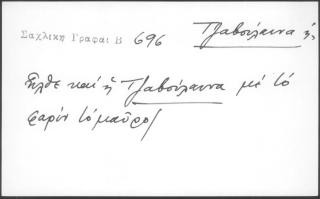 Σαχλίκη Γραφαί Β 696 Τζαβούλαινα ἡ,
ἦλθε καὶ ἡ Τζαβούλαινα μὲ τὸ
φαρὶν τὸ μαῦρο/